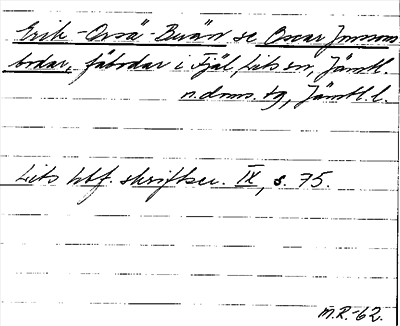 Erik-Orsä-Buän se Oscar Jonsons
bodar, fäbodar i Fjäl, Lits sn, Jämtl.
n. doms. tg, Jämtl. l.
Lits hbf. skriftser. IX, s. 75.
M.R.-62.